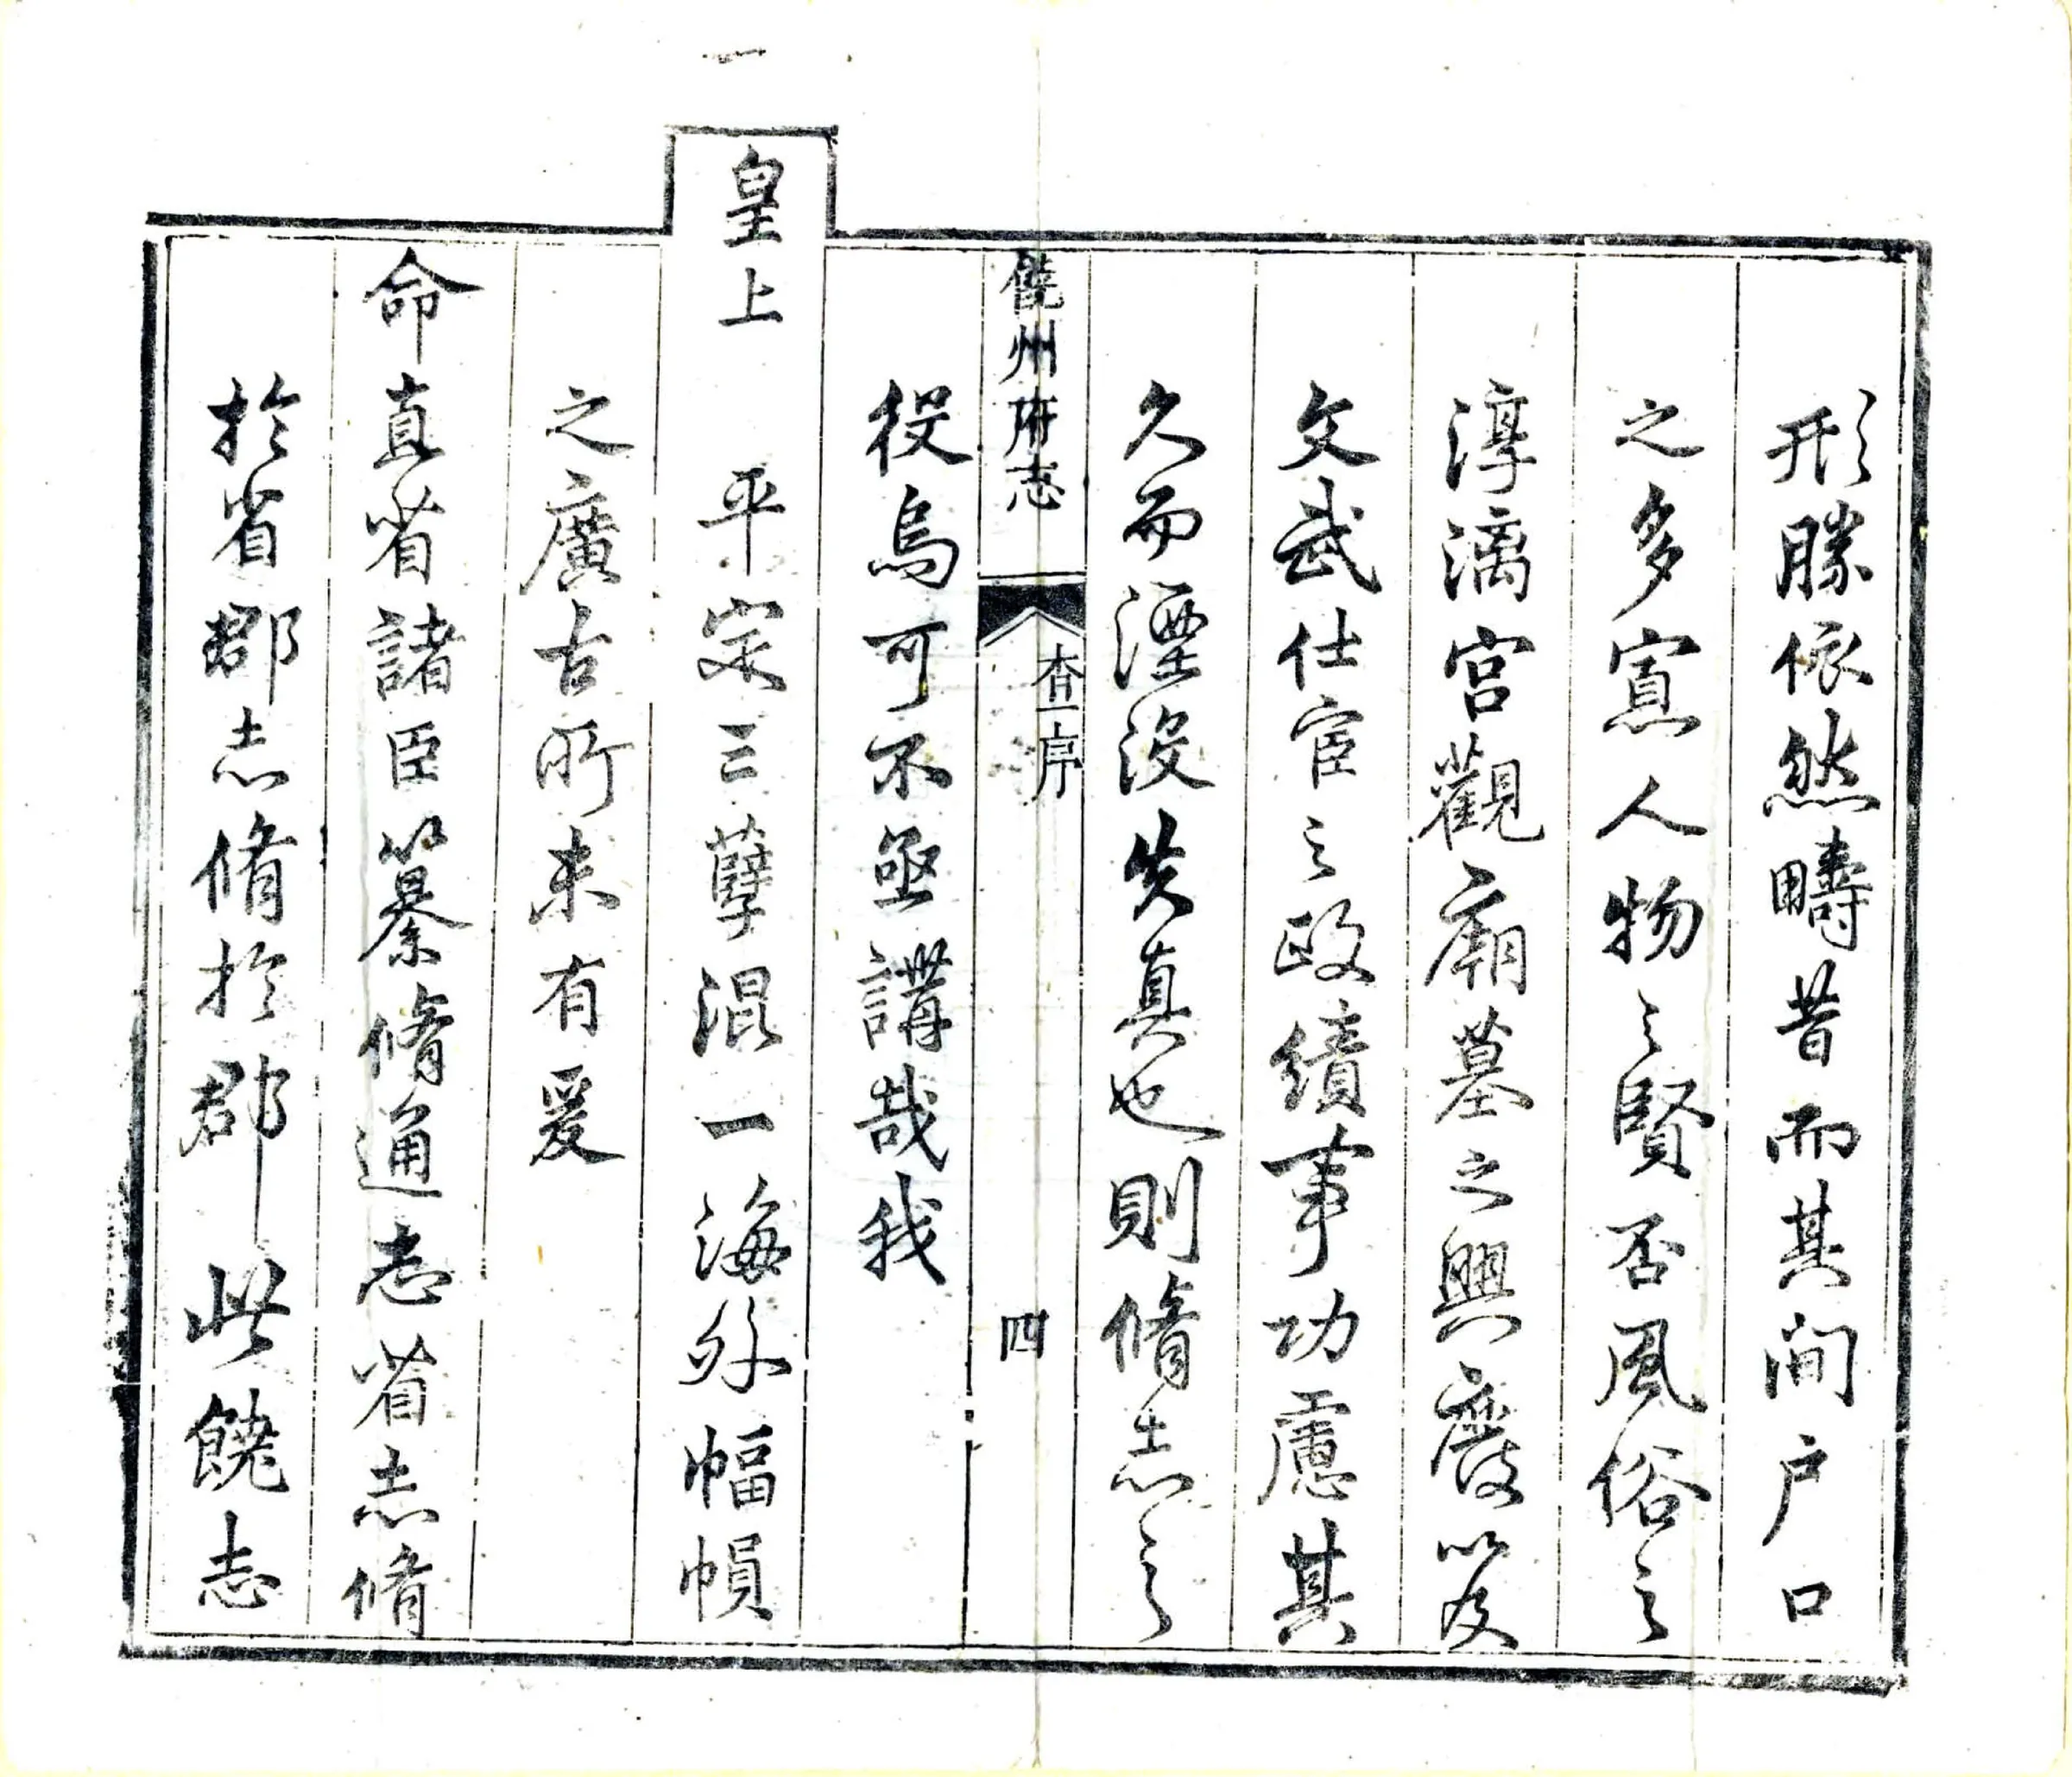 形勝依然疇昔而其间户口
之多寡人物之賢否風俗之
淳漓宫觀廟墓之興廢以及
文武仕宦之政績事功慮其
久而湮没失真也則脩志之
饒州府志
查序
四
役烏可不亟講哉我
皇上平定三孽混一海外幅幀
之廣古所未有爰
命直省諸臣纂脩通志省志脩
於省郡志脩於郡此饒志